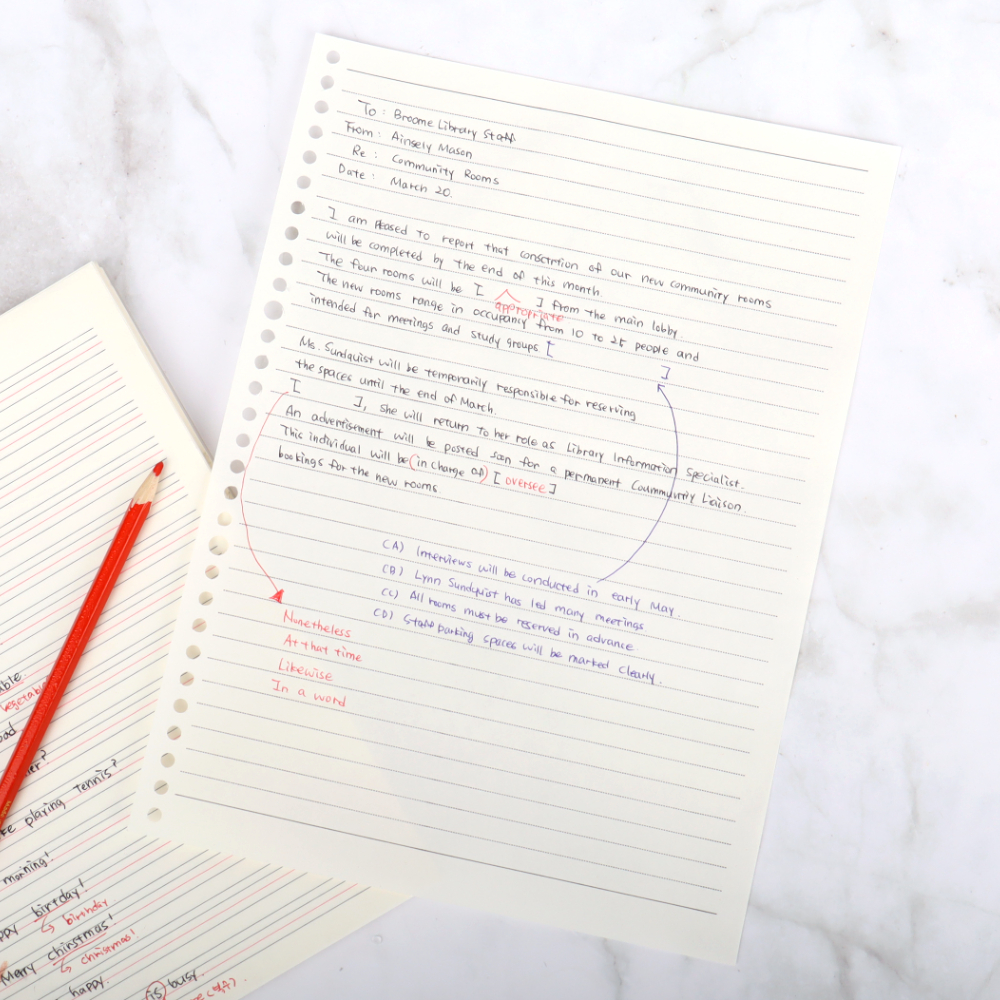 To : Broome Library Staff
From : Ainsely Mason
Re : Community Rooms
Date : March 20.
I am pleased to report that constrtion of our new community rooms
will be completed by the end of this month.
The four rooms will be [ ] from the main lobby.
appropriate
The new rooms range in occupancy from 10 to 25 people and
intended for meetings and study groups [ ]
Ms. Sundquist will be temporarily responsible for reserving
the spaces until the end of March.
[ ], she will return to her role as Library Information Specialist.
An advertisement will be posted soon for a permanent Coummunity Liaison.
This individual will be (in charge of) [ oversee ]
bookings for the new rooms.
(A) Interviews will be conducted in early May.
(B) Lynn Sundquist has led many meetings
(C) All rooms must be reserved in advance
(D) Staff parking spaces will be marked clearly.
Nonetheless
At that time
Likewise
In a word
able.
vegetabl
oad
er?
ke playing Tennis?
morning!
ppy birtday!
birthday
Merry chirstmas!
christmas!
happy.
(is) busy.